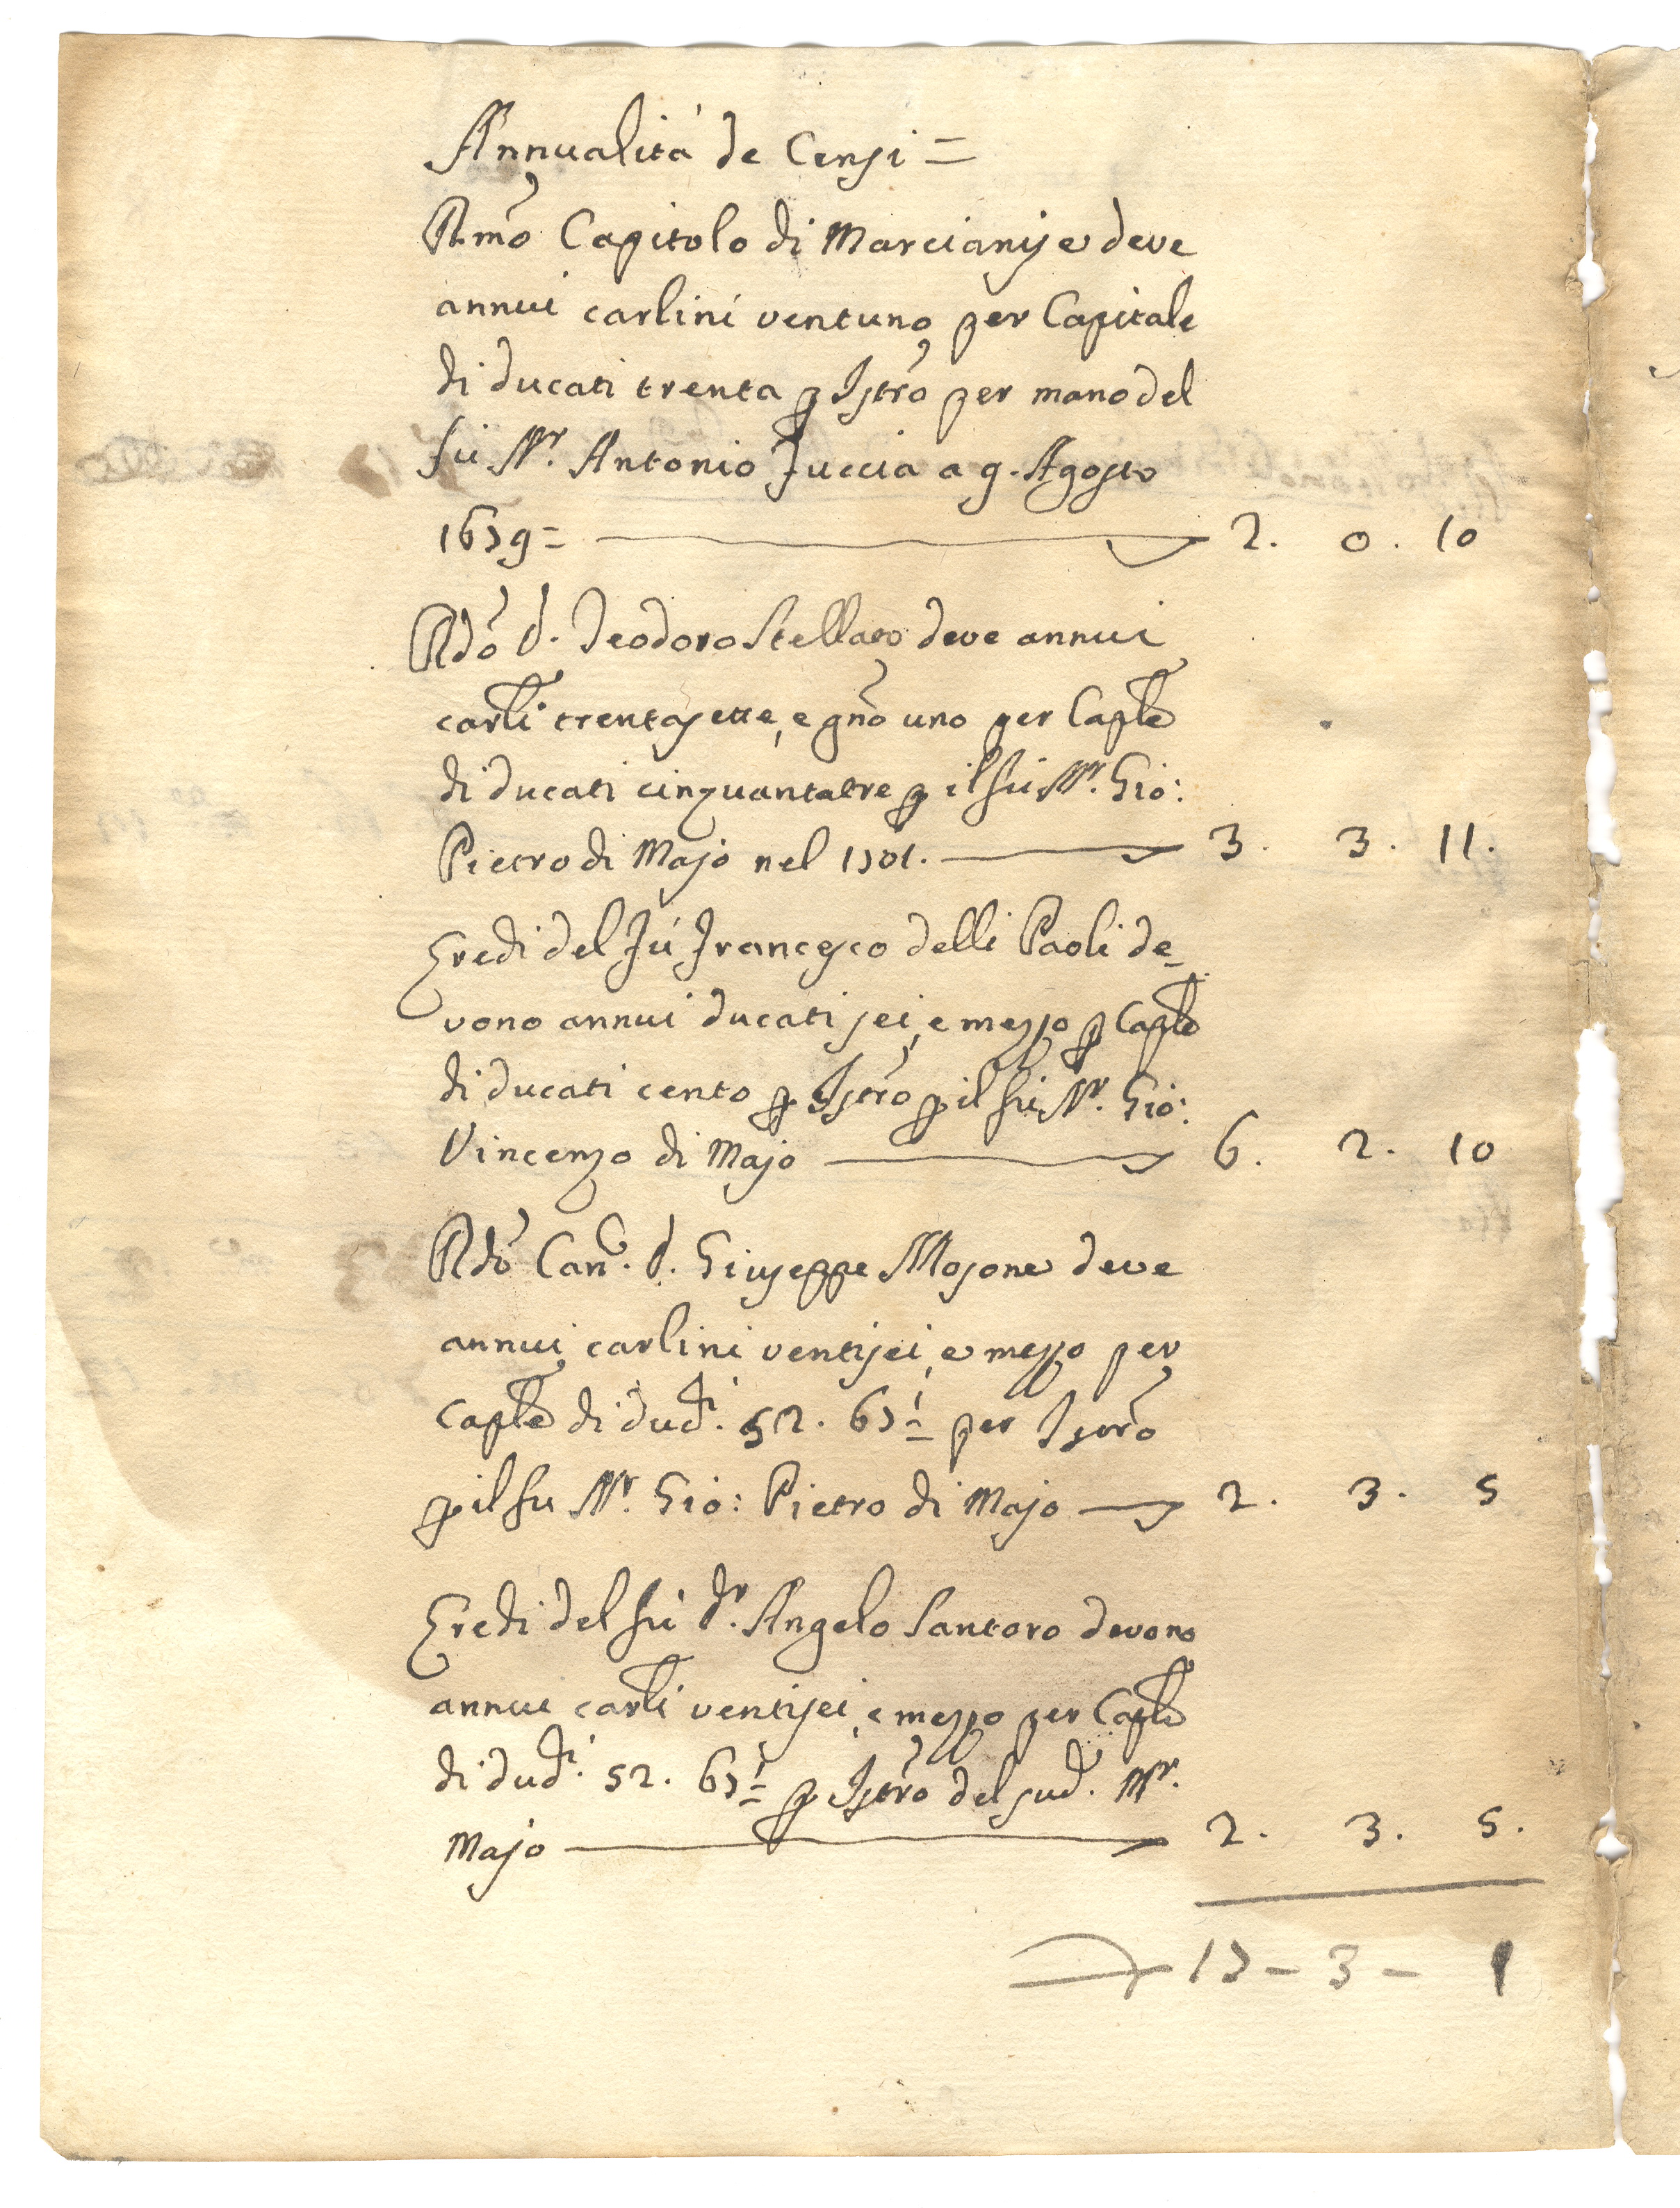 Annualità de Censi =
R.mo Capitolo di Marcianise deve
annui carlini ventuno per Capitale
di ducati trenta p Istro per mano del
fù Nr. Antonio Iuccia a 9. Agosto
1679 = 2. 0. 10
Rdo D. Teodoro Stellato deve annui
carli trentasette, e gno uno per Caple
di ducati cinquantatre p il fù Nr. Gio:
Pietro di Majo nel 1701. 3. 3. 11.
Eredi del Fù Francesco delli Paoli de_
vono annui ducati sei, e mezzo p Caple
di ducati cento p Istro p il fù Nr. Gio:
Vincenzo di Majo 6. 2. 10
Rdo Can.co D. Giuseppe Mosone deve
annui carlini ventisei, e mezzo per
Caple di ducti. 52. 67 1/2 per Istro
p il fu Nr. Gio: Pietro di Majo 2. 3. 5
Eredi del fù Dr. Angelo Santoro devono
annui carli ventisei, e mezzo per Caple
di ducti. 52. 67 1/2 p Istro del sudo. Nr.
Majo 2. 3. 5.
17 - 3 - 1